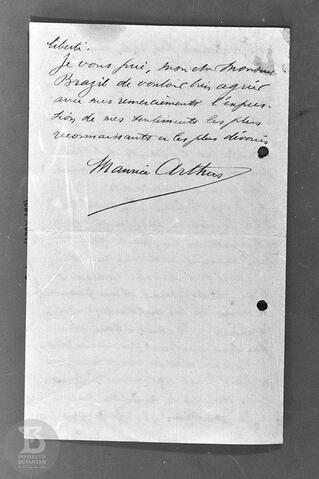 liberté.
Je vous prie, mon cher Monsieur
Brazil de vouloir bien agréer
avec mes remerciements l'expres-
sion de mes sentiments les plus
reconnaissants et les plus dévoués
Maurice Arthus
INSTITUTO
BUTANTAN